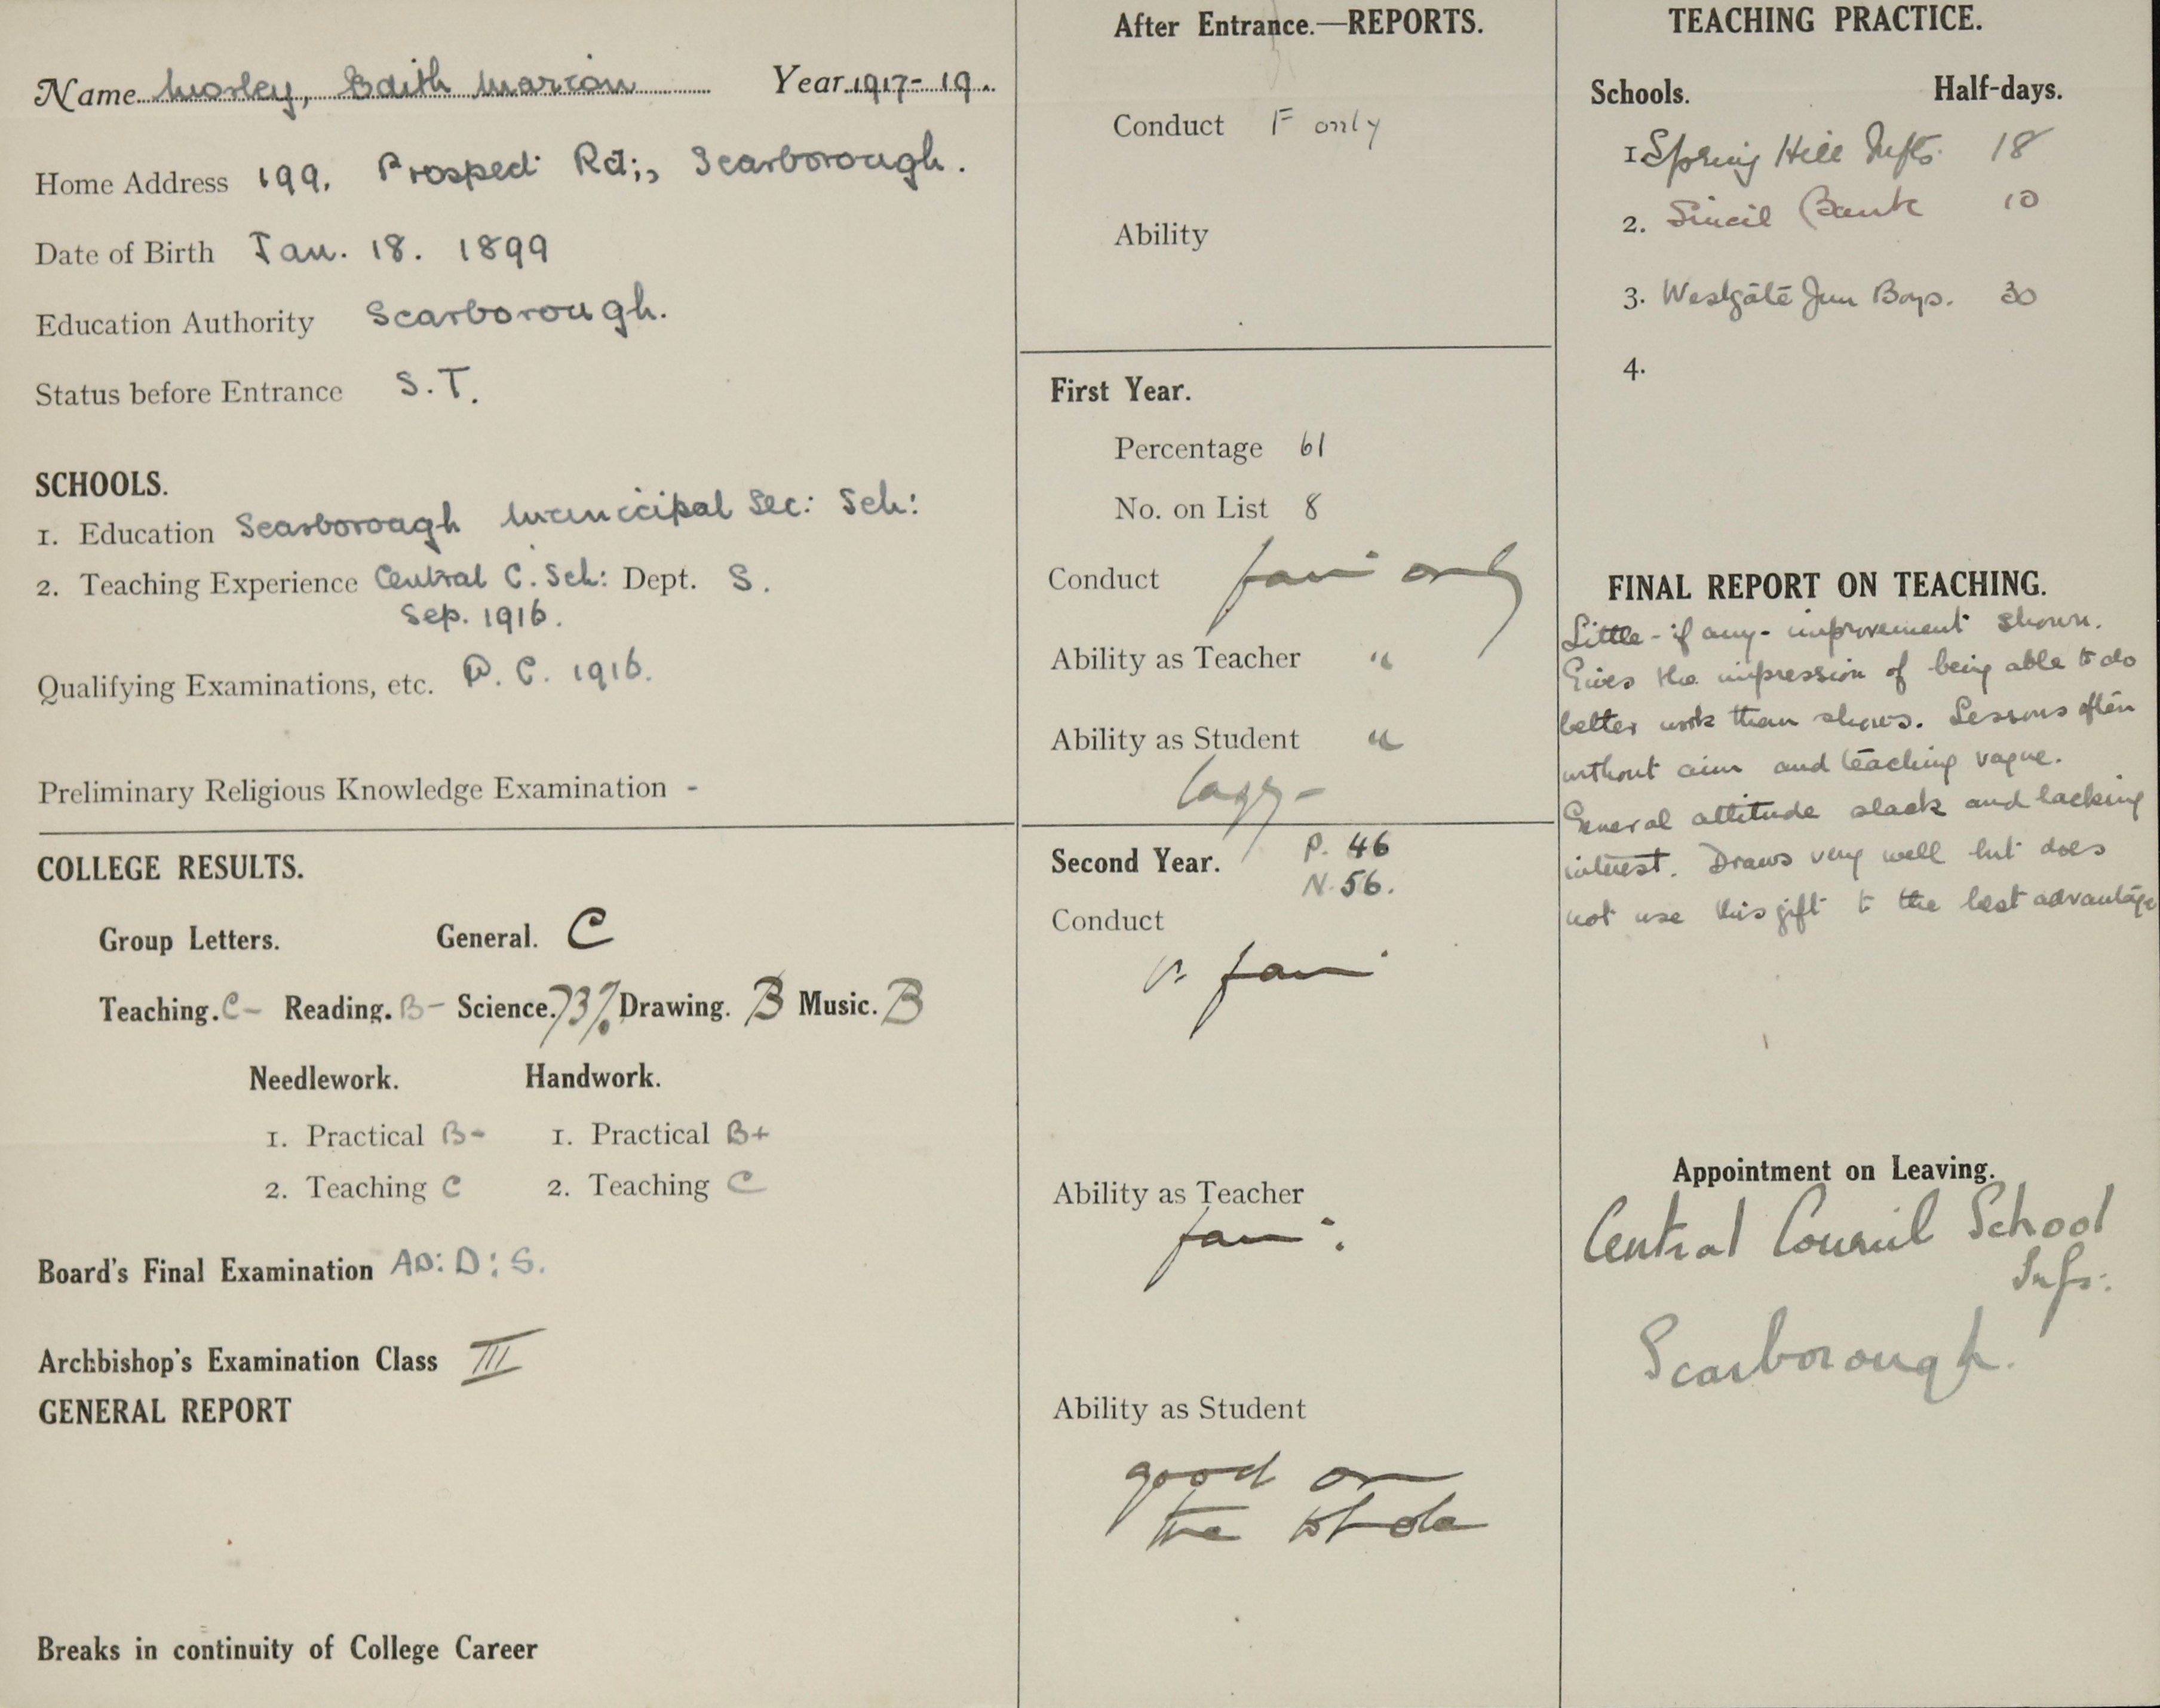 Name Mosley, Edith Marion Year 1917-19.
Home Address 199. Prospect Rd;, Scarborough.
Date of Birth Jan. 18. 1899
Education Authority Scarborough.
Status before Entrance S.T.
SCHOOLS.
1. Education Scarborough Municipal Sec: Sch:
2. Teaching Experience Central C. Sch: Dept. S.
Sep. 1916.
Qualifying Examinations, etc. P.C. 1916.
Preliminary Religious Knowledge Examination -
COLLEGE RESULTS.
Group Letters. General. C
Teaching. C- Reading. B- Science. 73% Drawing. B Music. B
Needlework. Handwork.
1. Practical B- 1. Practical B+
2. Teaching C 2. Teaching C
Board's Final Examination AD: D: S.
Archbishop's Examination Class III
GENERAL REPORT
Breaks in continuity of College Career
After Entrance.—REPORTS.
Conduct F only
Ability
First Year.
Percentage 61
No. on List 8
Conduct fair only
Ability as Teacher "
Ability as Student "
lazy -
Second Year. P. 46
N. 56.
Conduct
v. fair
Ability as Teacher
fair.
Ability as Student
good on
the whole
TEACHING PRACTICE.
Schools. Half-days.
1. Spring Hill Infts. 18
2. Sincil Bank 10
3. Westgate Jun Boys. 30
4.
FINAL REPORT ON TEACHING.
Little - if any - improvement shown.
Gives the impression of being able to do
better work than shows. Lessons often
without aim and teaching vague.
General attitude slack and lacking
interest. Draws very well but does
not use this gift to the best advantage
Appointment on Leaving.
Central Council School
Infs:
Scarborough.